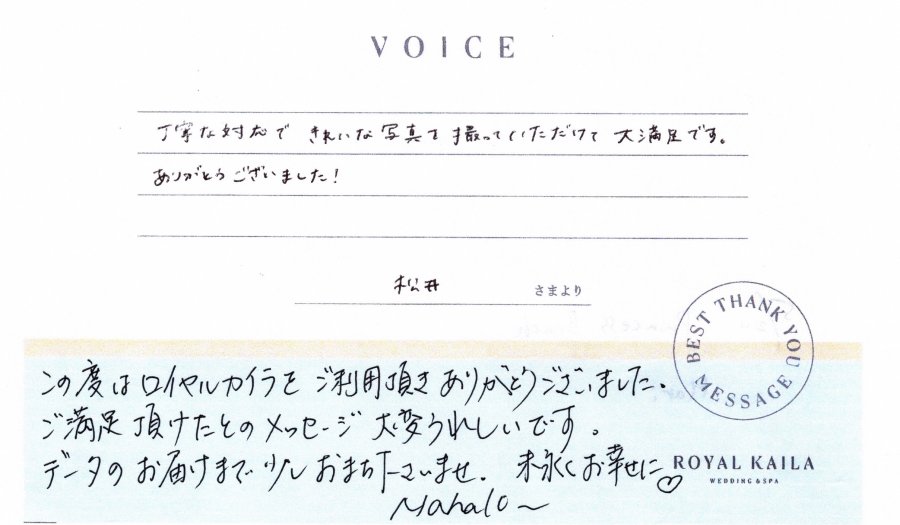 VOICE
丁寧な対応で きれいな写真を撮っていただけて 大満足です。
ありがとうございました!
松井 さまより
BEST THANK YOU MESSAGE
この度はロイヤルカイラをご利用頂きありがとうございました。
ご満足頂けたとのメッセージ大変うれしいです。
データのお届けまで少しおまち下さいませ。末永くお幸せに♡
Mahalo~
ROYAL KAILA
WEDDING & SPA